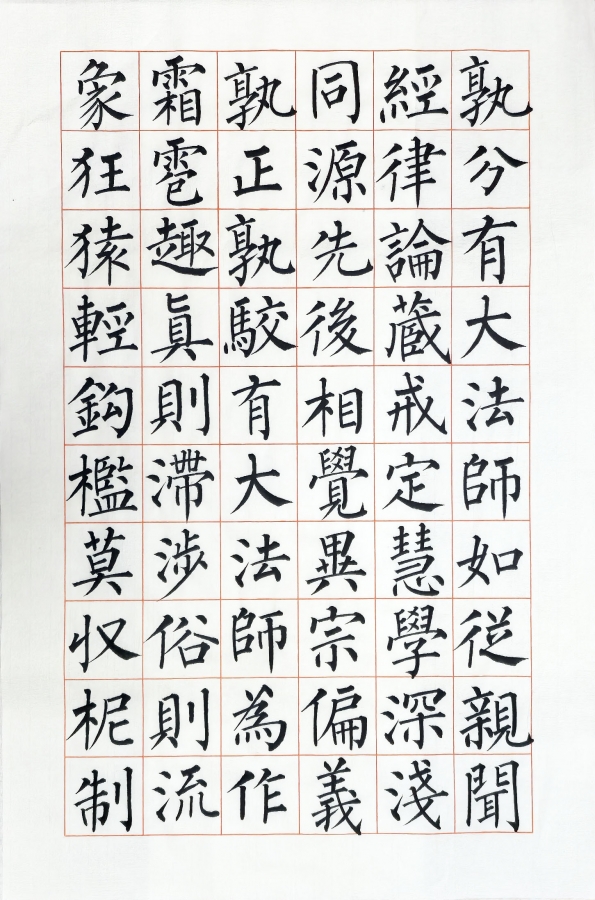 孰分有大法師如從親聞
經律論蔵戒定慧學深淺
同源先後相覺異宗偏義
孰正孰駮有大法師為作
霜雹趣眞則滯涉俗則流
象狂猿輕鈎檻莫収柅制